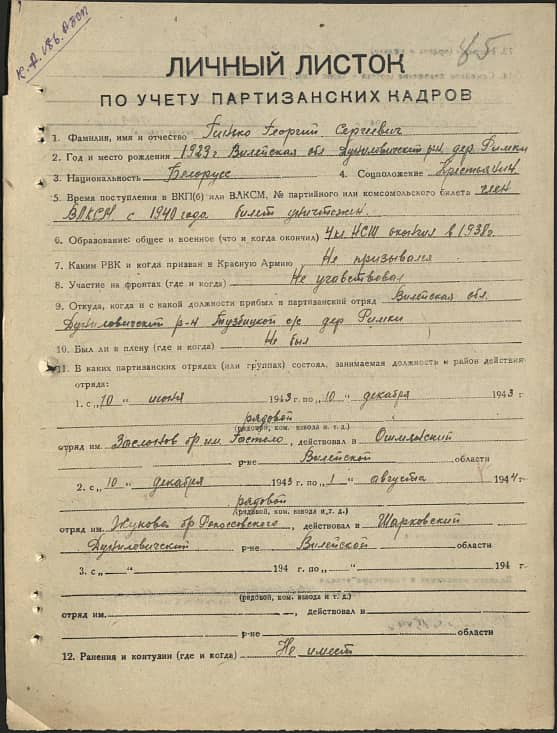 85
ЛИЧНЫЙ ЛИСТОК
ПО УЧЕТУ ПАРТИЗАНСКИХ КАДРОВ
1. Фамилия, имя и отчество Гинько Георгий Сергеевич
2. Год и место рождения 1923 г Вилейская обл Дуниловичский р-н дер. Римки
3. Национальность Белорус 4. Соцположение Крестьянин
5. Время поступления в ВКП(б) или ВЛКСМ, № партийного или комсомольского билета член
ВЛКСМ с 1940 года билет уничтожен.
6. Образование: общее и военное (что и когда окончил) 4 кл НСШ окончил в 1938г.
7. Каким РВК и когда призван в Красную Армию Не призывался
8. Участие на фронтах (где и когда) Не участвовал
9. Откуда, когда и с какой должности прибыл в партизанский отряд Вилейская обл.
Дуниловичский р-н с/с дер Римки
10. Был ли в плену (где и когда) Не был
11. В каких партизанских отрядах (или группах) состоял, занимаемая должность и район действия
отряда:
1. с „10 " июня 1943 г. по „10 " декабря 1943 г
рядовой
(рядовой, ком. взвода и т. д.)
отряд им. Заслонов бр. им. Гастело, действовал в Ошмянский
р-не Вилейской области
2. с „10 " декабря 1943 г. по „1 " августа 1944 г.
рядовой
(рядовой, ком. взвода и.т. д.)
отряд им. Жукова бр. Рокоссовского, действовал в Шарковский
Дуниловичский р-не Вилейской области
3. с „ " 194 г. по „ " 194 г
(рядовой, ком. взвода и т. д.)
отряд им. , действовал в
р-не области
12. Ранения и контузии (где и когда) Не имеет